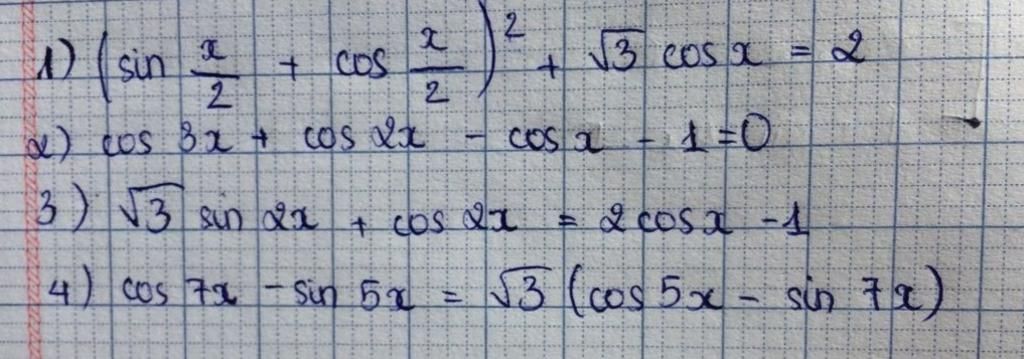 1) (sin x/2 + cos x/2)² + √3 cos x = 2
2) cos 3x + cos 2x - cos x - 1 = 0
3) √3 sin 2x + cos 2x = 2 cos x - 1
4) cos 7x - sin 5x = √3 (cos 5x - sin 7x)